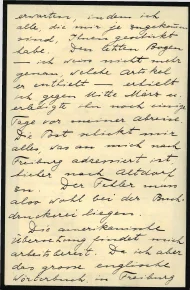 erwarten, indem ich
alle, die mir je zugekommen
sind, Ihnen geschickt
habe. Den letzten Bogen
— ich weiss nicht mehr
genau, welche Artikel
er enthielt — erhielt
ich gegen Mitte März u.
noch einige
Tage vor meiner Abreise
Die Post schickt mir
alles, was an mich nach
Freiburg adressiert ist
sicher nach Altdorf
Der Fehler muss
also wohl bei der Buch-
druckerei liegen.
Die amerikanische
Übersetzung findet mich
arbeitsbereit. Da ich aber
das grosse englische
Wörterbuch in Freiburg